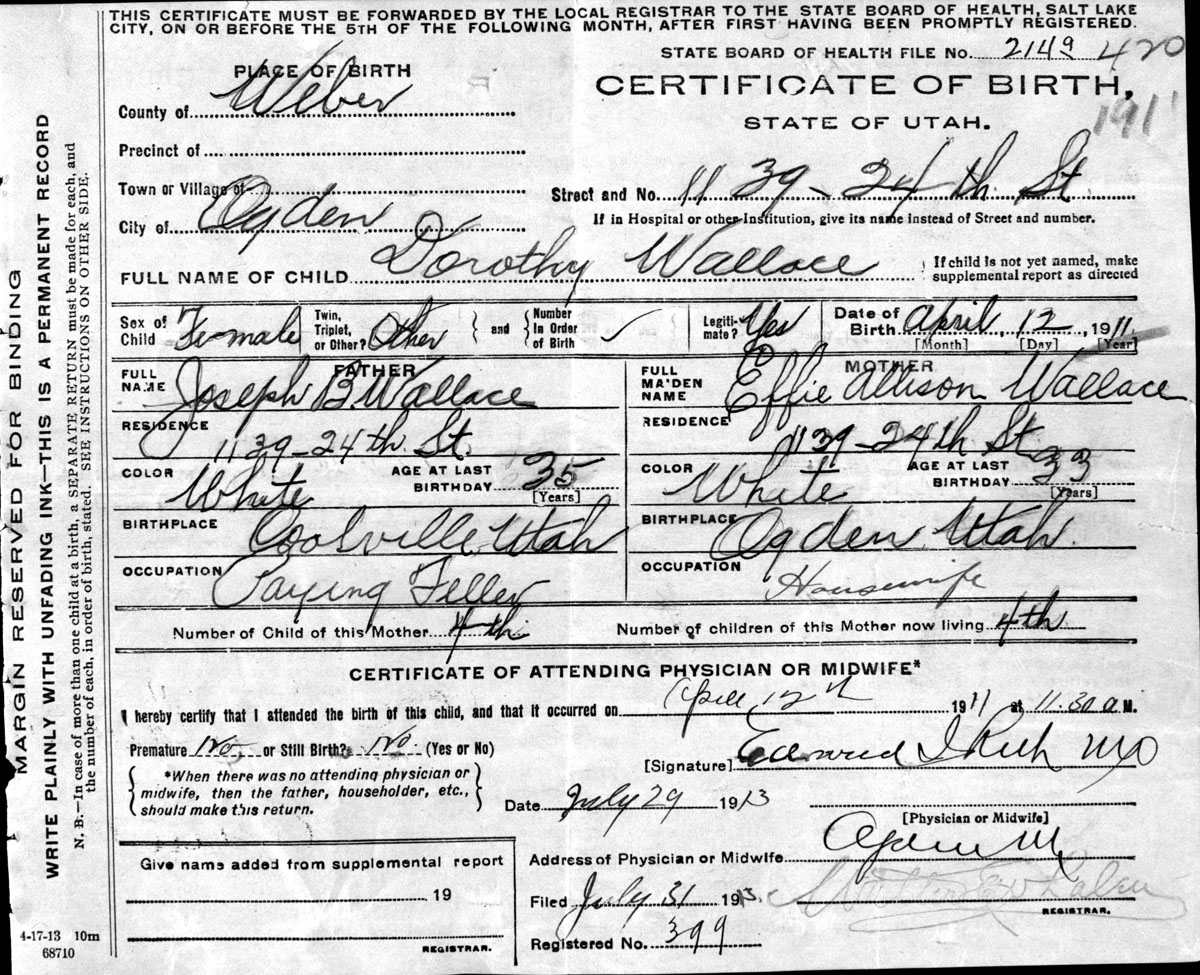 THIS CERTIFICATE MUST BE FORWARDED BY THE LOCAL REGISTRAR TO THE STATE BOARD OF HEALTH, SALT LAKE
CITY, ON OR BEFORE THE 5TH OF THE FOLLOWING MONTH, AFTER FIRST HAVING BEEN PROMPTLY REGISTERED.
STATE BOARD OF HEALTH FILE No. 2149 420
PLACE OF BIRTH
CERTIFICATE OF BIRTH,
1911
County of Weber
STATE OF UTAH.
Precinct of
Town or Village of
Street and No. 1139-24th St
City of Ogden
If in Hospital or other Institution, give its name instead of Street and number.
FULL NAME OF CHILD Dorothy Wallace
If child is not yet named, make
supplemental report as directed
Sex of Child Female Twin, Triplet, or Other? Other and Number In Order of Birth Legiti-mate? Yes Date of Birth April 12 1911
[Month] [Day] [Year]
FATHER
MOTHER
FULL NAME Joseph B. Wallace
FULL MAIDEN NAME Effie Allison Wallace
RESIDENCE 1139-24th St.
RESIDENCE 1139-24th St
COLOR White AGE AT LAST BIRTHDAY 35 [Years]
COLOR White AGE AT LAST BIRTHDAY 33 [Years]
BIRTHPLACE Coalville, Utah
BIRTHPLACE Ogden Utah.
OCCUPATION Paying Teller
OCCUPATION Housewife
Number of Child of this Mother 4th
Number of children of this Mother now living 4th
CERTIFICATE OF ATTENDING PHYSICIAN OR MIDWIFE*
I hereby certify that I attended the birth of this child, and that it occurred on April 12th 1911 at 11.30 a M.
Premature No or Still Birth? No (Yes or No)
[Signature] Edward I Rich MD
*When there was no attending physician or
midwife, then the father, householder, etc.,
should make this return.
Date July 29 1913
[Physician or Midwife]
Give name added from supplemental report
Address of Physician or Midwife Ogden
19
Filed July 31 1913.
REGISTRAR.
Registered No. 399
REGISTRAR.
MARGIN RESERVED FOR BINDING
WRITE PLAINLY WITH UNFADING INK—THIS IS A PERMANENT RECORD
N. B.—In case of more than one child at a birth, a SEPARATE RETURN must be made for each, and
the number of each, in order of birth, stated. SEE INSTRUCTIONS ON OTHER SIDE.
4-17-13 10m
68710